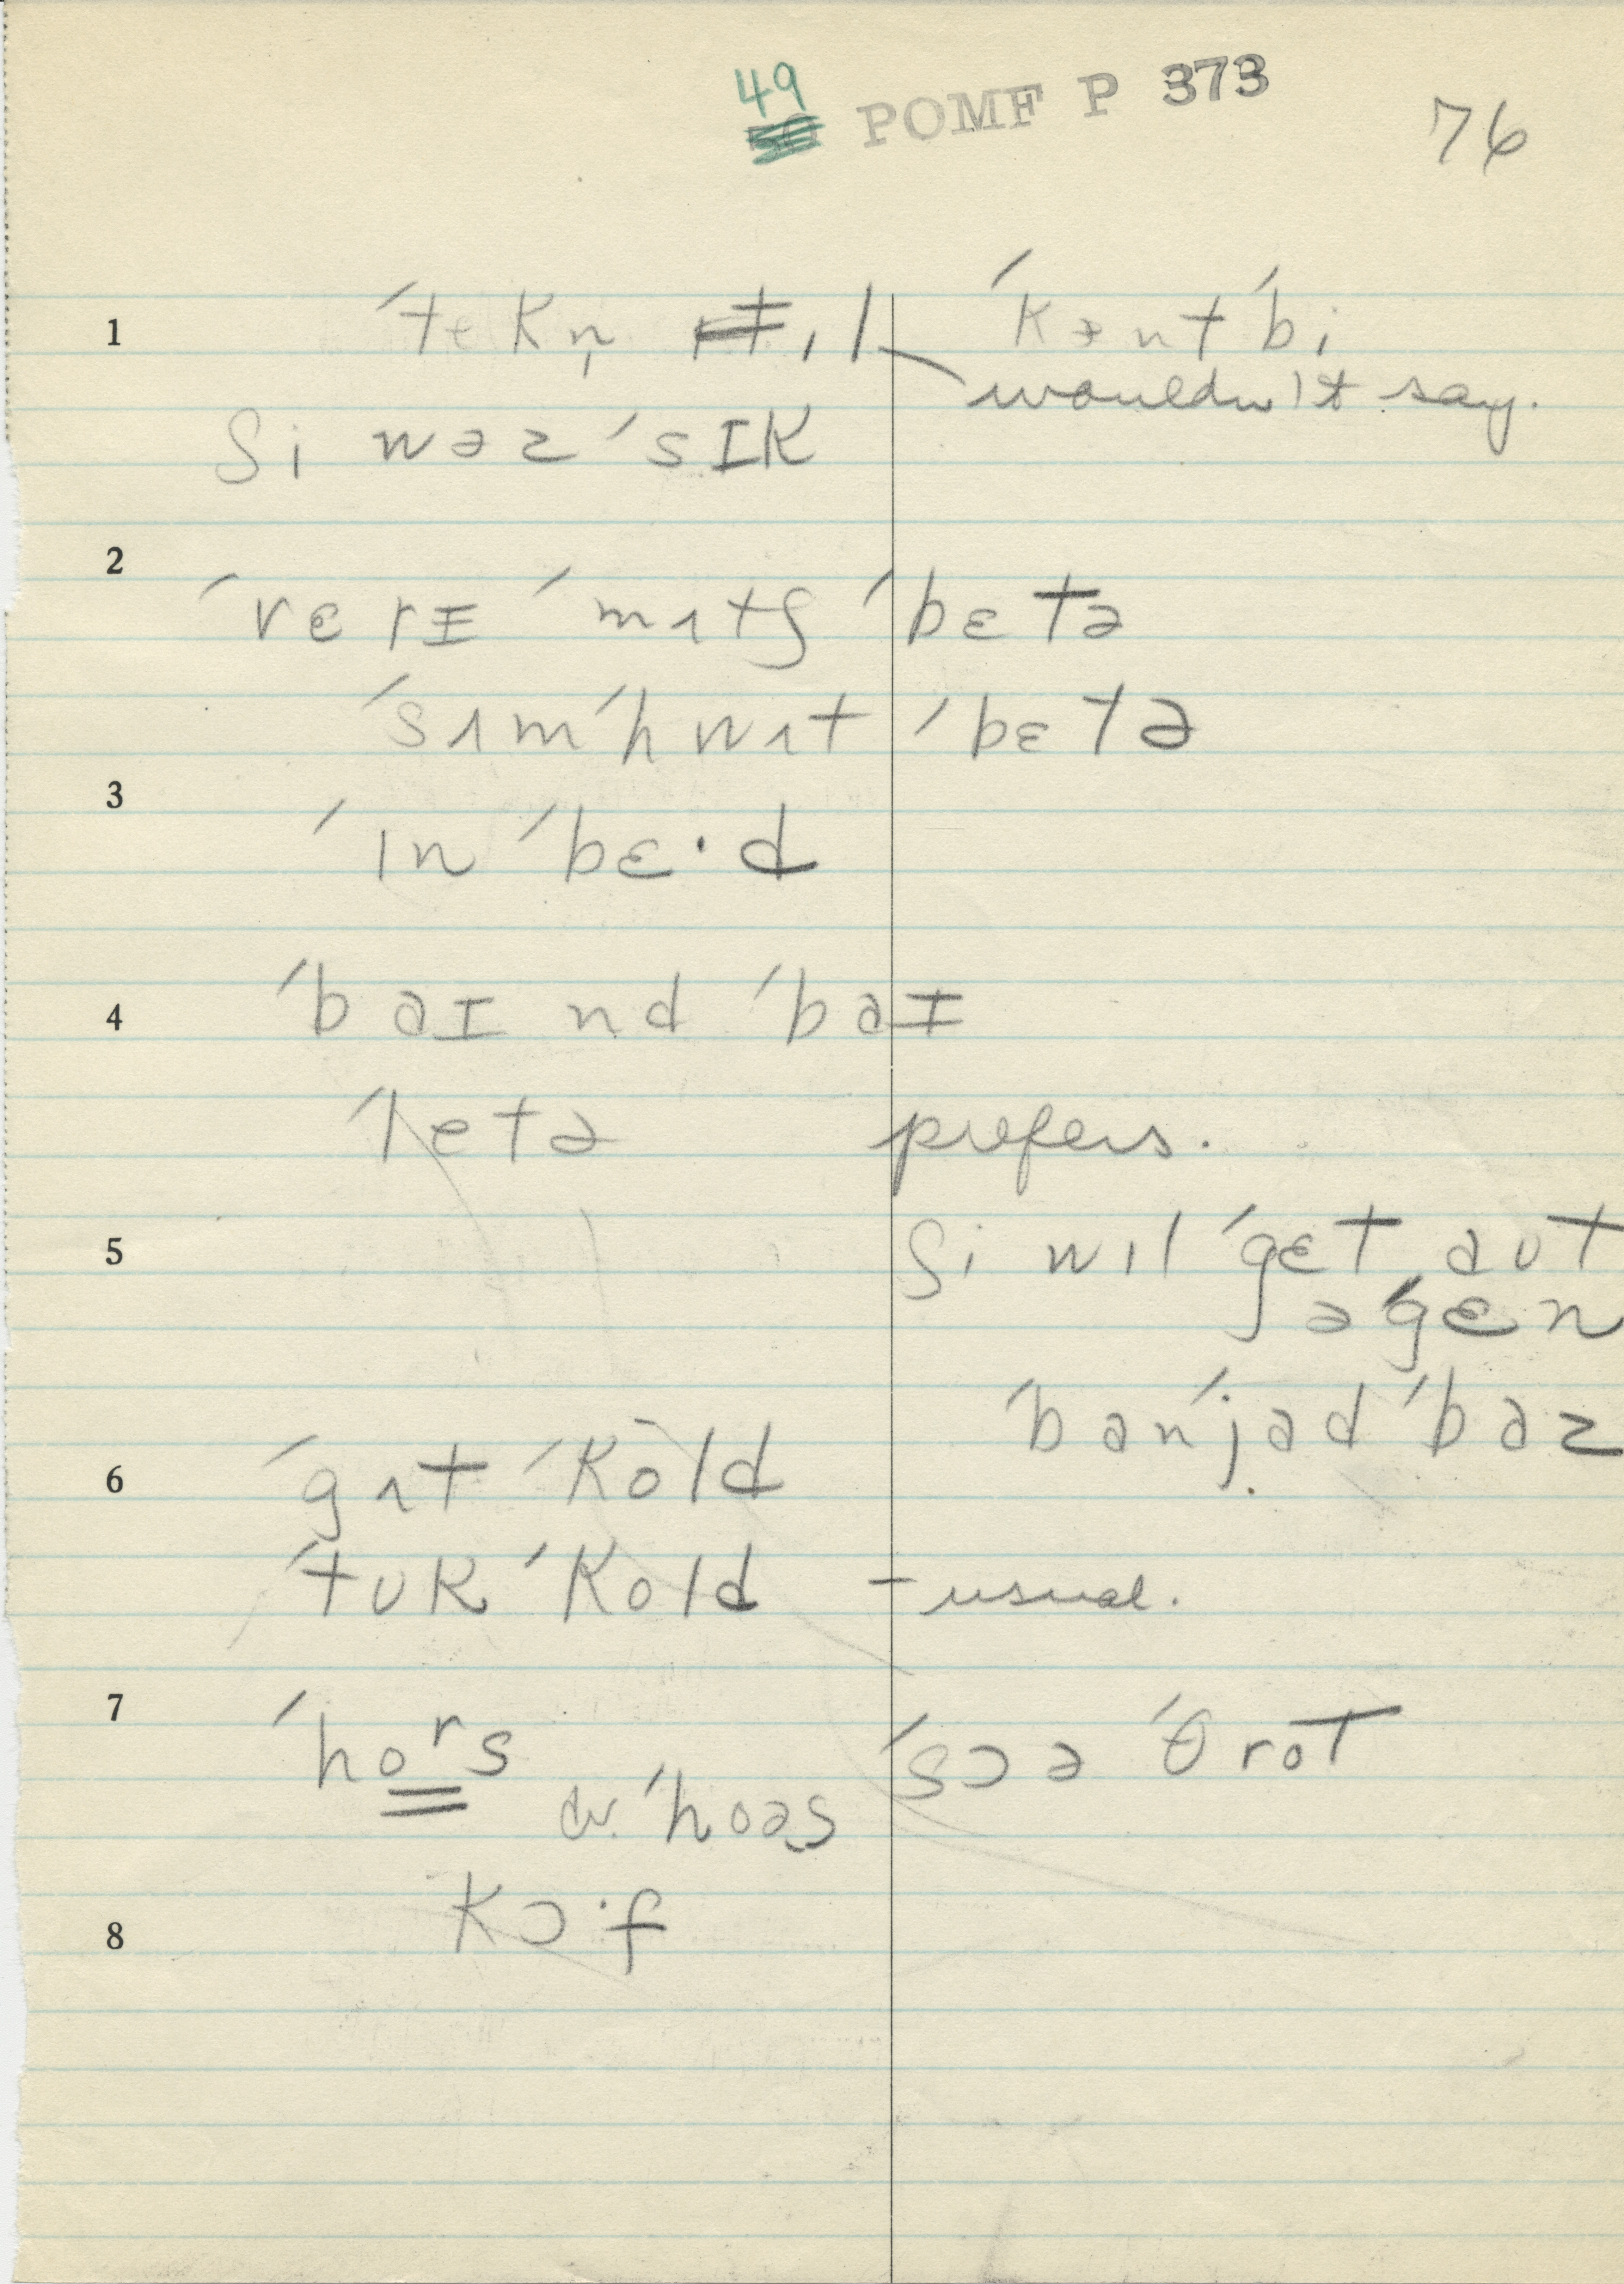 49
POMF P 373
76
1 ˈtekn̩ ɪl ˈkɑnt ˈbi
wouldn't say.
ʃi wəz ˈsɪk
2
ˈvɛrɪ ˈmʌtʃ ˈbɛtə
ˈsʌmˈhwʌt ˈbɛtə
3
ˈɪn ˈbɛ·d
4 ˈbaɪ nd ˈbaɪ
ˈletə prefers.
5 ʃi wɪl ˈgɛt aʊt
əˈgɛn
ˈbanˈjad ˈbaz
6 ˈgʌt ˈkold
ˈtʊk ˈkold - usual.
7 ˈhoʳs ˈsɔə ˈθrɒt
or ˈhoəs
8 kɔ·f